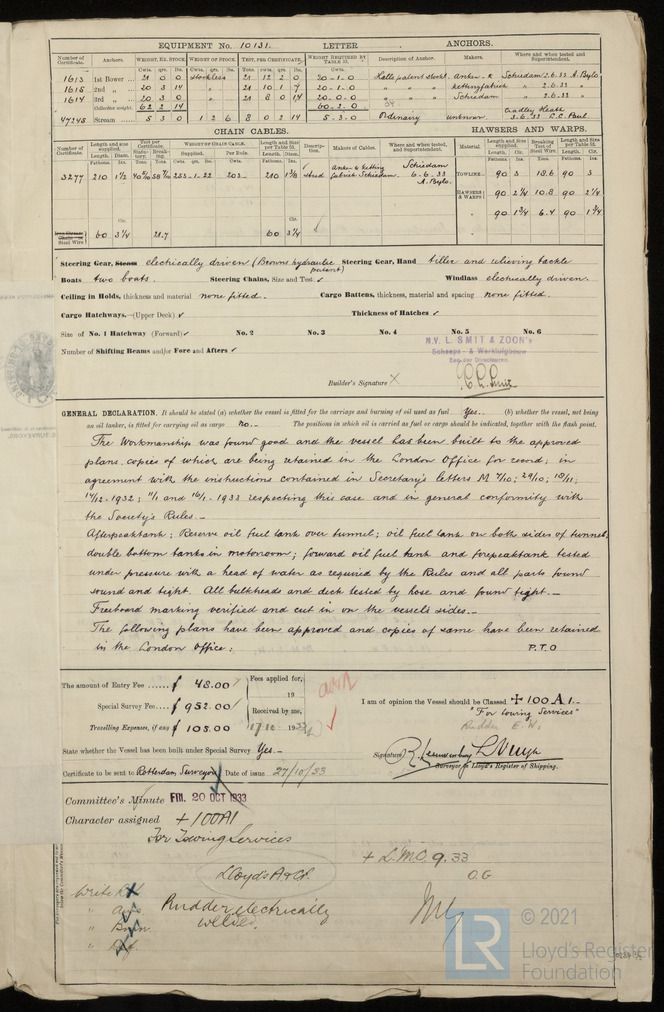 EQUIPMENT No. 10131. LETTER ANCHORS.
Number of Certificate. Anchors. WEIGHT, EX. STOCK. WEIGHT OF STOCK. TEST, PER CERTIFICATE. WEIGHT REQUIRED BY TABLE 31. Description of Anchor. Makers. Where and when tested and Superintendent.
Cwts. qrs. lbs. Cwts. qrs. lbs. Tons. cwts. qrs. lbs. Cwts.
1613 1st Bower 21 0 0 stockless 21 12 2 0 20-1-0 Halls patent stockl. Anker- & Schiedam 2.6.33 A. Bylo.
1615 2nd „ 20 3 14 „ 21 10 1 7 20-1-0 „ „ „ kettingfabriek „ 2.6.33 „
1614 3rd „ 20 3 0 „ 21 8 0 14 20-0-0 „ „ „ Schiedam „ 2.6.33 „
Collective weight 62 2 14 60-2-0
47245 Stream 5 3 0 1 2 6 8 0 2 14 5-3-0 Ordinary unknown. Cradley Heath 3.6.33 C.C. Paul
CHAIN CABLES. HAWSERS AND WARPS.
Number of Certificate. Length and size supplied. Test per Certificate. WEIGHT OF CHAIN CABLE. Length and size per Table 31. Description. Makers of Cables. Where and when tested, and Superintendent. Material. Length and size supplied. Breaking Test of Steel Wire. Length and size per Table 31.
3277 210 1½ 203 210 stud Anker- & Ketting fabriek Schiedam. Schiedam 6.6.33 A. Bylo. TOWLINE 90 3 18.6 90 3
HAWSERS & WARPS 90 2¼ 10.8 90 2¼
„ 90 1¾ 6.4 90 1¾
Steel Wire 60 3¼ 28.7 60 3¼
Steering Gear, Steam electrically driven (Browns hydraulic patent) Steering Gear, Hand tiller and relieving tackle
Boats two boats. Steering Chains, Size and Test ✓ Windlass electrically driven.
Ceiling in Holds, thickness and material none fitted. Cargo Battens, thickness, material and spacing none fitted.
Cargo Hatchways.—(Upper Deck) ✓ Thickness of Hatches ✓
Size of No. 1 Hatchway (Forward) ✓ No. 2 No. 3 No. 4 No. 5 No. 6
Number of Shifting Beams and/or Fore and Afters ✓
N.V. L. SMIT & ZOON's
Scheeps- & Werktuigbouw
Een der Directeuren
Builder's Signature
GENERAL DECLARATION. It should be stated (a) whether the vessel is fitted for the carriage and burning of oil used as fuel Yes. (b) whether the vessel, not being
an oil tanker, is fitted for carrying oil as cargo no. The positions in which oil is carried as fuel or cargo should be indicated, together with the flash point.
The Workmanship was found good and the vessel has been built to the approved
plans, copies of which are being retained in the London Office for record; in
agreement with the instructions contained in Secretary's letters M 7/10; 29/10; 18/11;
17/12-1932; 11/1 and 16/1-1933 respecting this case and in general conformity with
the Society's Rules.—
Afterpeaktank; Reserve oil fuel tank over tunnel; oil fuel tank on both sides of tunnel,
double bottom tanks in motorroom; forward oil fuel tank and forepeaktank tested
under pressure with a head of water as required by the Rules and all parts found
sound and tight. All bulkheads and deck tested by hose and found tight.—
Freeboard marking verified and cut in on the vessels sides.—
The following plans have been approved and copies of same have been retained
in the London Office: P.T.O
The amount of Entry Fee ...... £ 48.00 Fees applied for,
19
Special Survey Fee.... £ 952.00 Received by me,
Travelling Expenses, if any £ 105.00 17/10 1933
I am of opinion the Vessel should be Classed +100A1.—
"For towing Services"
Rudder E.W.
State whether the Vessel has been built under Special Survey Yes.—
Signature
Surveyor to Lloyd's Register of Shipping.
Certificate to be sent to Rotterdam Surveyors Date of issue 27/10/33
Committee's Minute FRI. 20 OCT 1933
Character assigned +100A1
For Towing Services
+ L.M.C. 9.33
O.G
Lloyd's A&CP.
Rudder electrically
welded.
LR © 2021
Lloyd's Register
Foundation